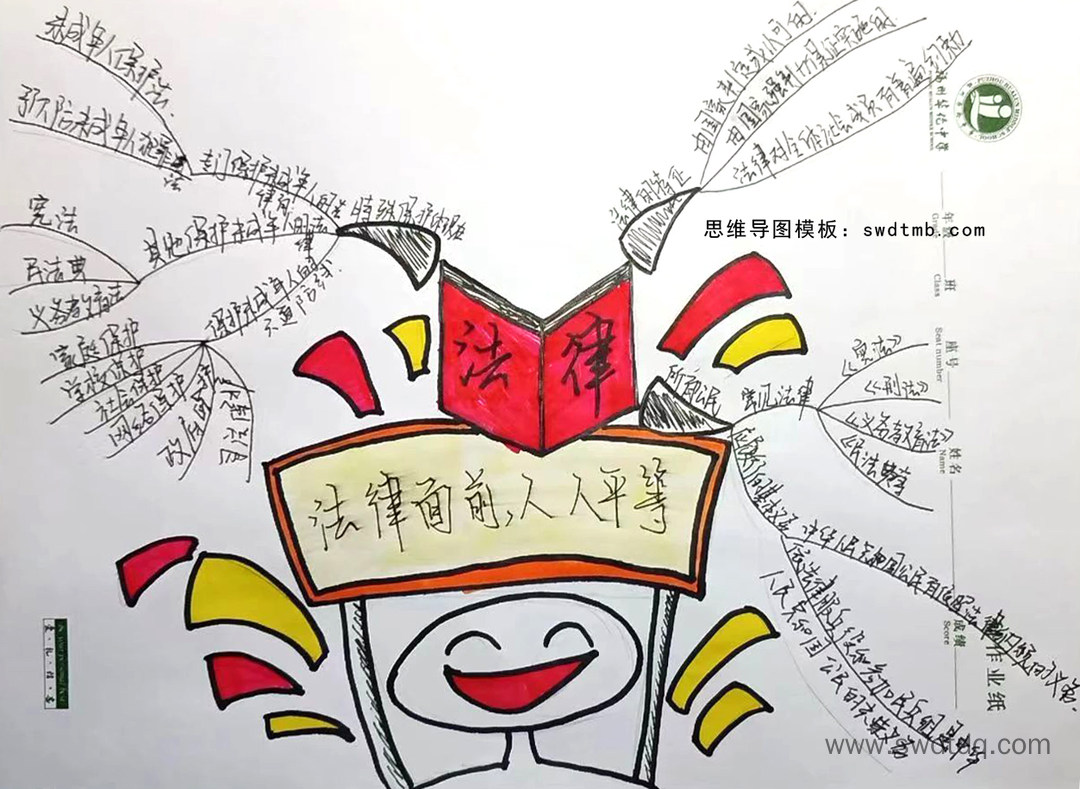 未成年人保护法
预防未成年人犯罪法
专门保护未成年人的法律
特殊保护
宪法
民法典
义务教育法
其他保护未成年人的法律
保护未成年人的
家庭保护
学校保护
社会保护
网络保护
政府保护
司法保护
法律的特征
由国家制定或认可的
由国家强制力保证实施的
法律对全体社会成员具有普遍约束力
思维导图模板：swdtmb.com
法律
法律面前，人人平等
所有公民
常见法律
《宪法》
《刑法》
《义务教育法》
《民法典》
中华人民共和国公民有依照法律纳税的义务
依法律服兵役和参加民兵组织是中华
人民共和国公民的光荣义务
年级
Grade
班
Class
座号
Seat number
姓名
Name
成绩
Score
作业纸
www.swdtdq.com